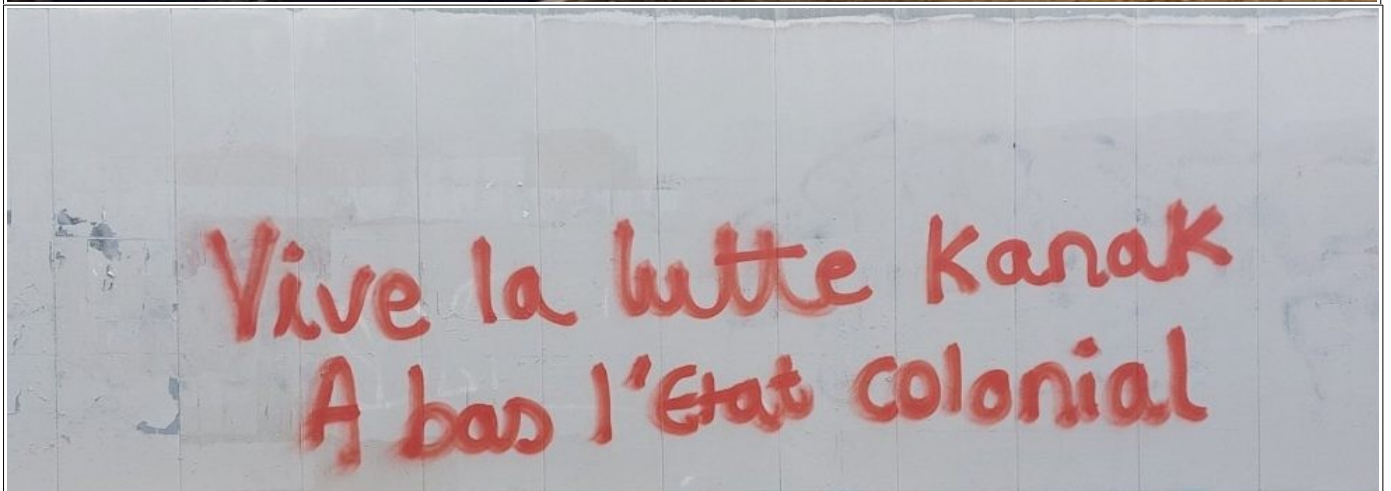 Vive la lutte Kanak
A bas l'Etat colonial